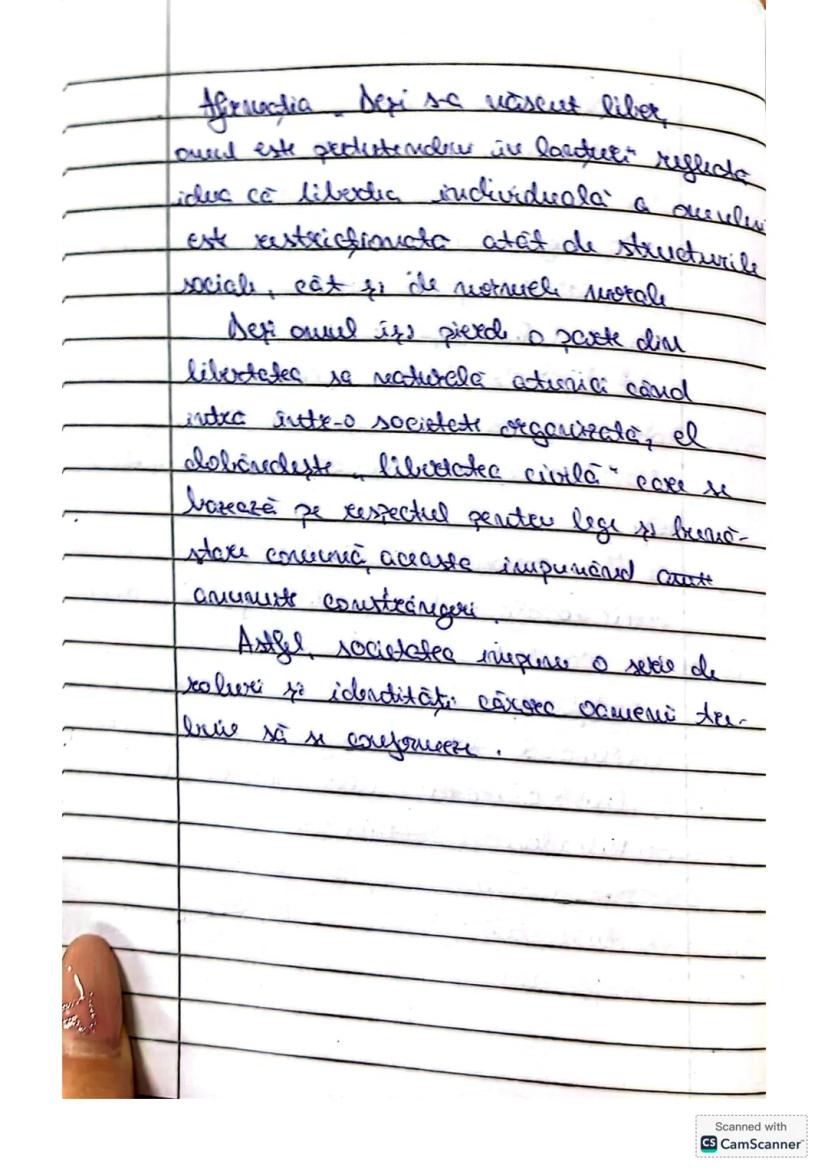 Afirmația „Deși s-a născut liber,
omul este pretutindeni în lanțuri reflectă
ideea că libertea individuală a omului
este restricționată atât de structurile
sociale, cât și de normele morale
Deși omul își pierde o parte din
libertatea sa naturală atunci când
intră într-o societate organizată, el
dobândește „libertatea civilă" care se
bazează pe respectul pentru lege și bună-
stare comună, aceasta impunând
anumite constrângeri.
Astfel, societatea impune o serie de
roluri și identități cărora oamenii tre-
buie să se conformeze.
Scanned with
CS CamScanner